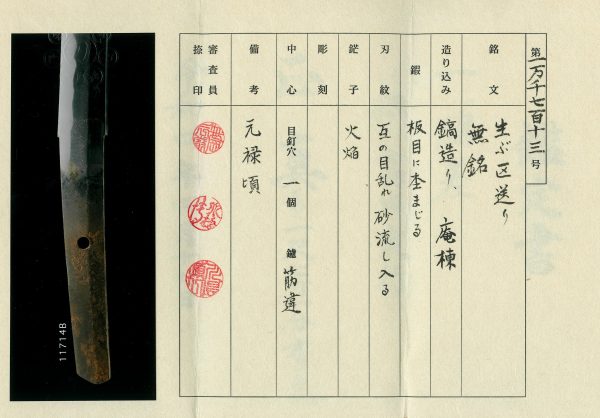 第一万千七百十三号
銘文 生ぶ区送り
無銘
造り込み 鎬造り、庵棟
鍛 板目に杢まじる
刃紋 互の目乱れ 砂流し入る
鋩子 火焔
彫刻
中心 目釘穴 一個 鑢 筋違
備考 元禄頃
審査員捺印
11714B